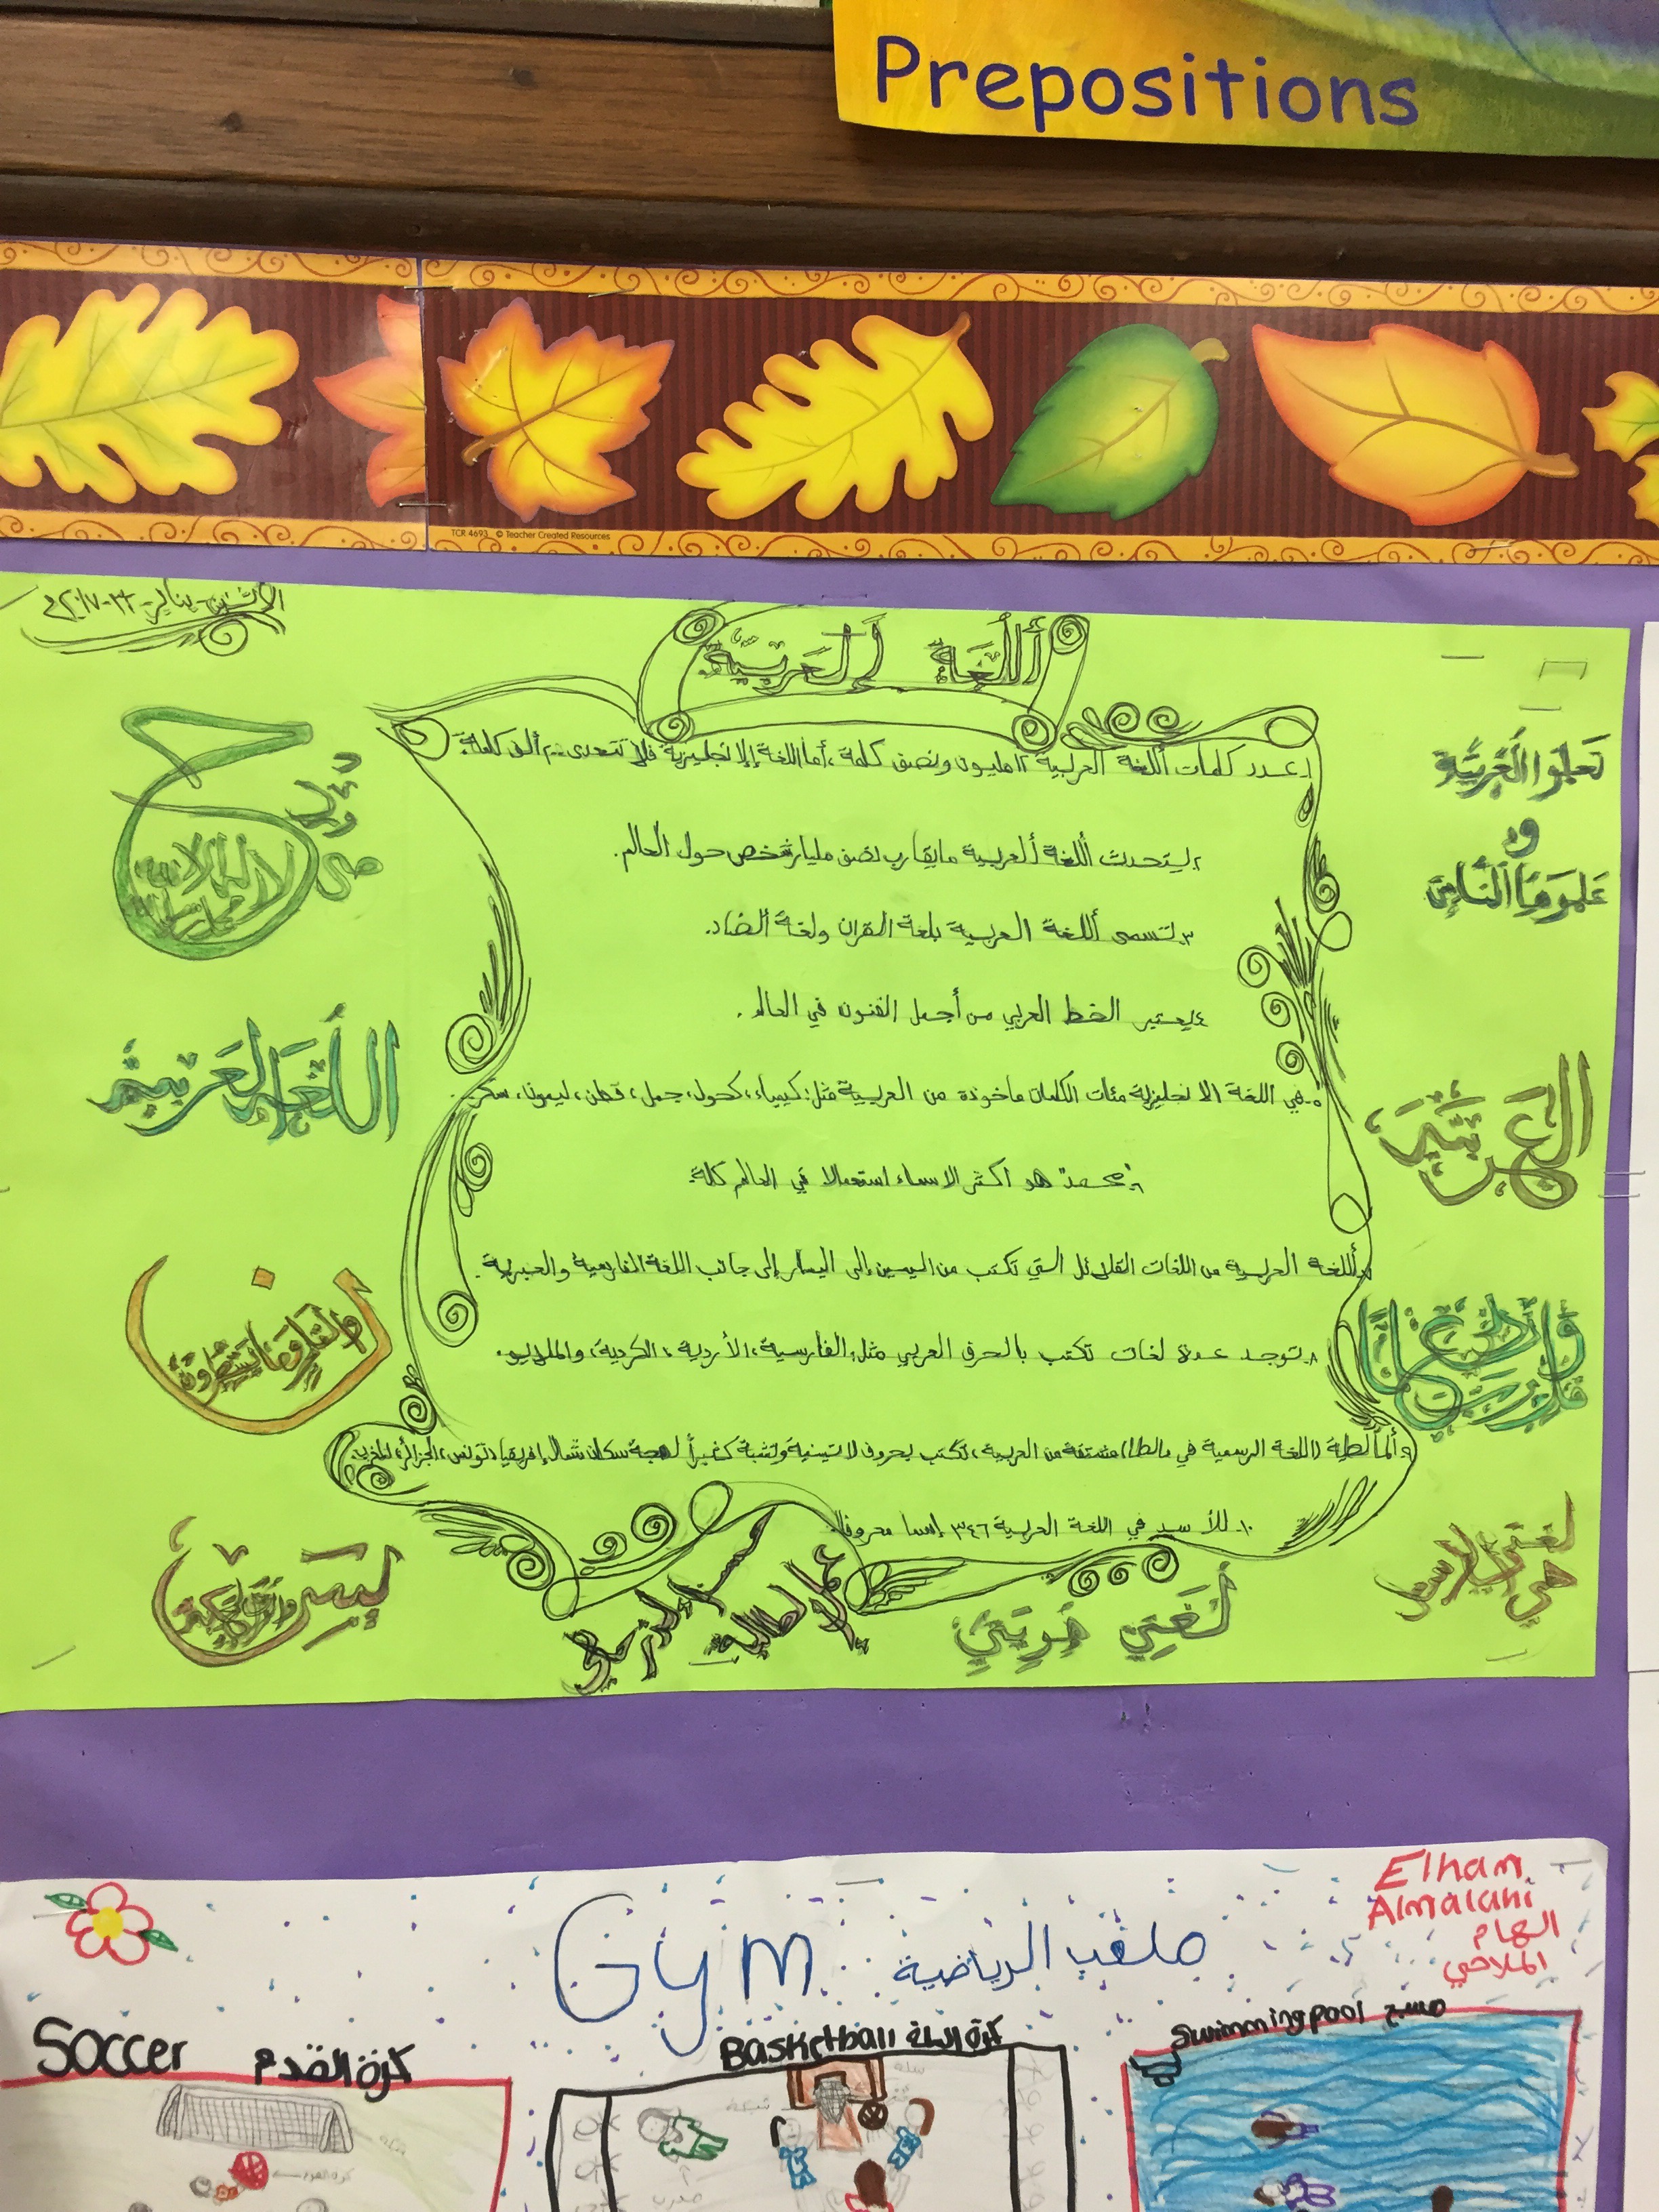 Prepositions
TCR 4693 © Teacher Created Resources
أللغة ألعربية
١ـ عدد كلمات أللغة العربية ١٢ مليون ونصف كلمة، أما اللغة إلإنجليزية فلا تتعدى ٦٠٠ ألف كلمة.
٢ـ يتحدث أللغة ألعربية مايقارب نصف مليار شخص حول ألعالم.
٣ـ تسمى أللغة العربية بلغة القران ولغة الضاد.
٤ـ يعتبر الخط العربي من أجمل الفنون في العالم.
٥ـ في اللغة الانجليزية مئات الكلمات ماخوذة من العربية مثل: كيمياء، كحول، جمل، قطن، ليمون، سكر.
٦ـ "محمد" هو اكثر الاسماء استعمالا في العالم كلة.
٧ـ أللغة العربية من اللغات القلائل التي تكتب من اليمين إلى اليسار إلى جانب اللغة الفارسية والعبرية.
٨ـ توجد عدة لغات تكتب بالحرف العربي مثل: الفارسية، الأردية، الكردية، والملايو.
٩ـ ألمالطية (اللغة الرسمية في مالطا) مشتقة من العربية، تكتب بحروف لاتينية وتشبة كثيراً لهجة سكان شمال إفريقيا، تونس، الجزائر، المغرب.
١٠ـ للأسد في اللغة العربية ٣٤٦ إسما معروفا.
تعلموا العربية
و
علموها الناس
العربية
اللغة العربية
ن
والقلم وما يسطرون
يس
لغتي هويتي
عمل الطالبة
Elham
Almalahi
الهام
الملاحي
Gym ملعب الرياضية
Soccer كرة القدم
Basketball كرة السلة
Swimming pool مسبح
سلة
شبكة